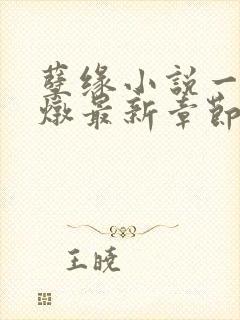 孽缘小說一
燉最新章節
王晓